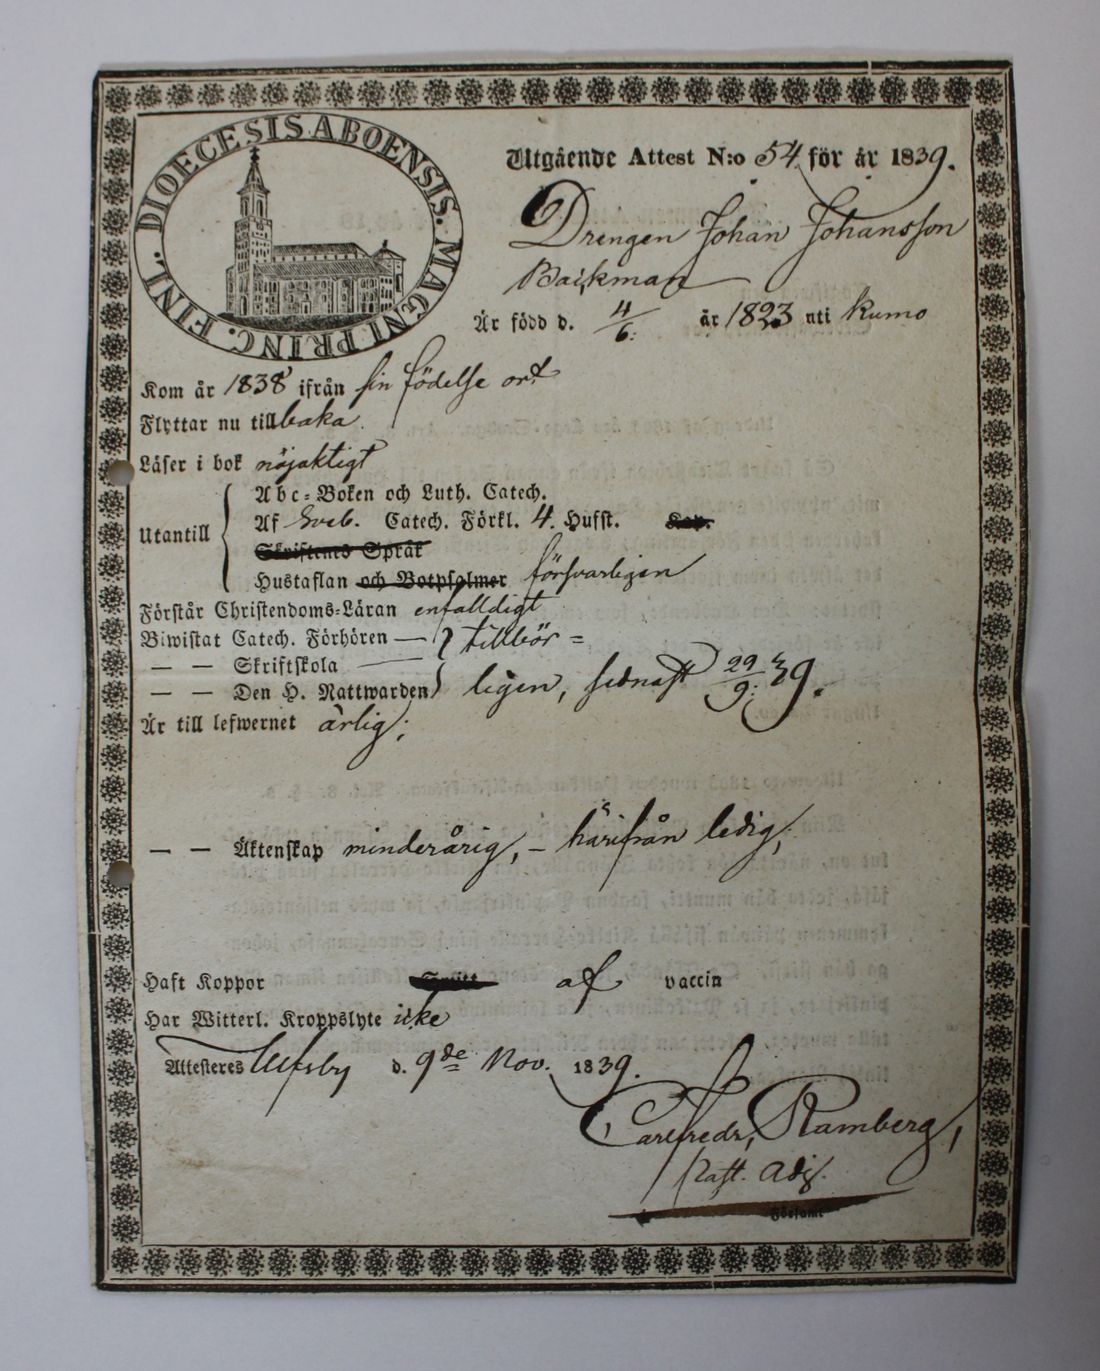 DIOECESIS ABOENSIS. MAGNI PRINC. FINL.
Utgående Attest N:o 54. för år 1839.
Drengen Johan Johansson
Backman
Är född d. 4/6: år 1823 uti Kumo
Kom år 1838 ifrån sin födelse ort
Flyttar nu tillbaka.
Läser i bok nöjaktigt
Abc-Boken och Luth. Catech.
Utantill
Af Sveb. Catech. Förkl. 4. Hufst.
Skriftenes Språk
Hustaflan och Botpsalmer försvarligen
Förstår Christendoms-Läran enfalldigt
Biwistat Catech. Förhören — tillbör =
— — Skriftskola —
— — Den H. Nattwarden ligen, sednast 29/9: 39.
Är till lefwernet ärlig;
— — Äktenskap minderårig, – härifrån ledig;
Haft Koppor af vaccin
Har Witterl. Kroppslyte icke
Attesteras Ulfsby d. 9de Nov. 1839.
Carlfredr, Ramberg,
Past. Adj.
Församl